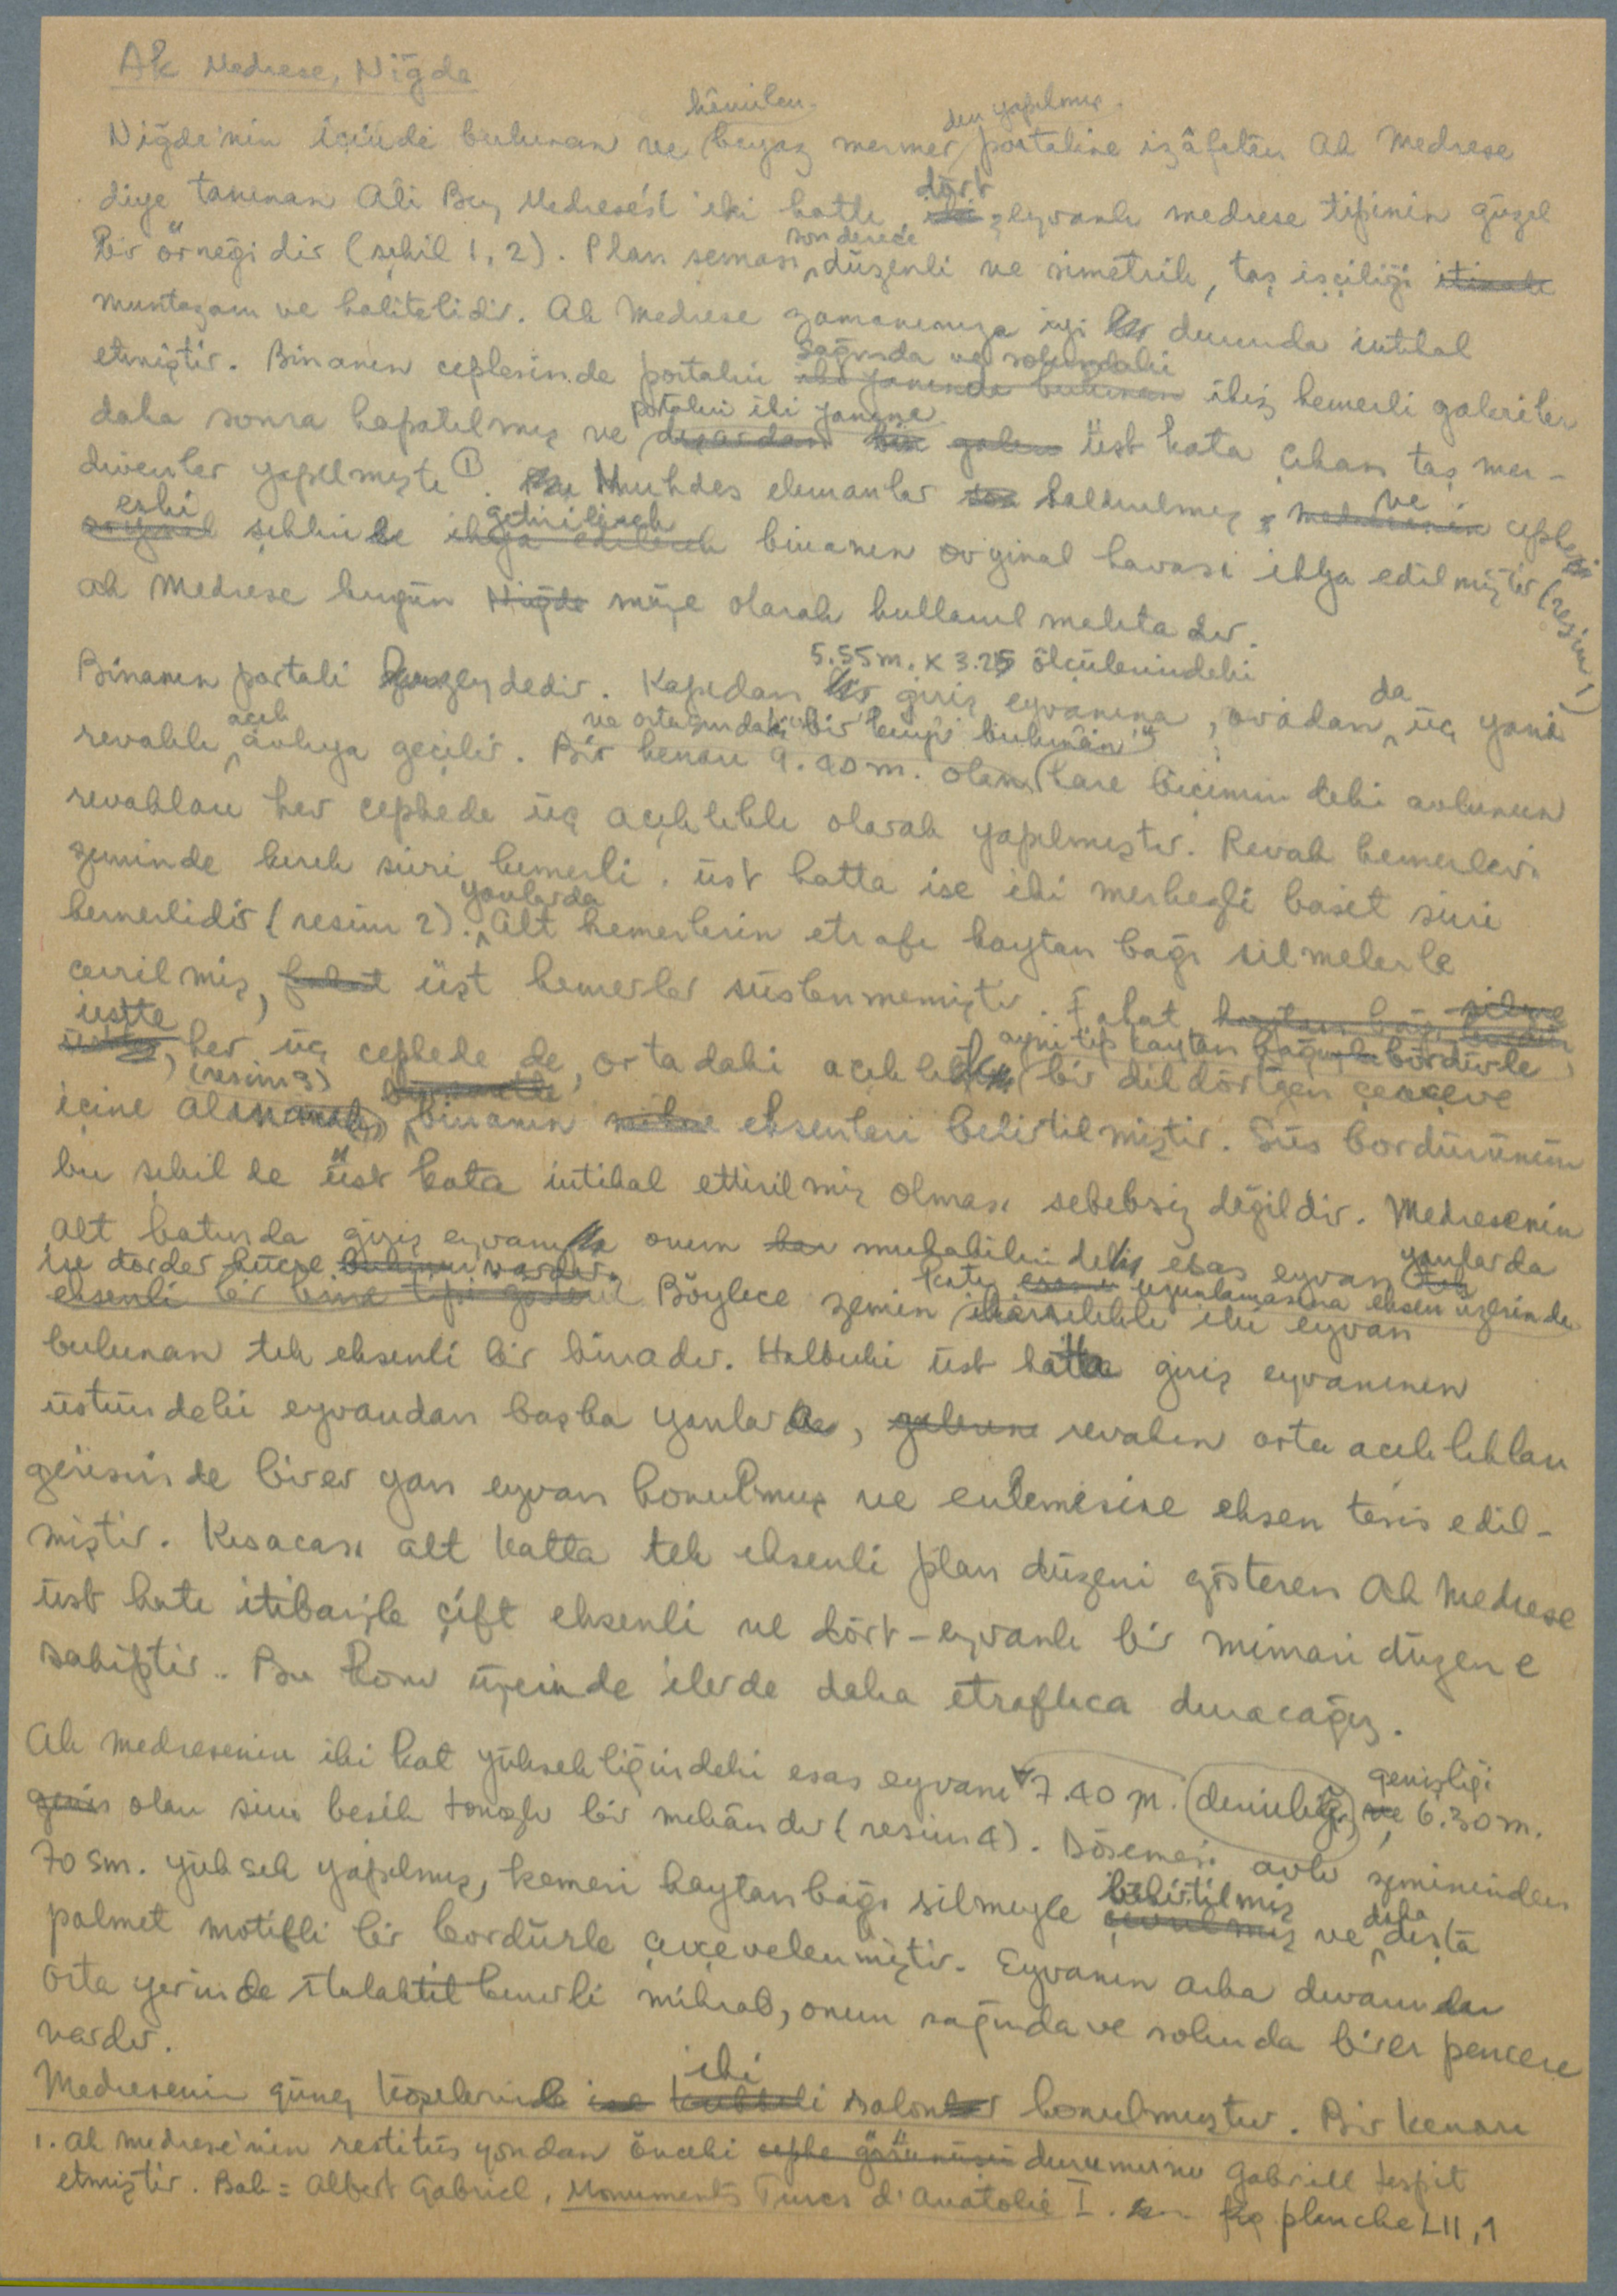 Ak Medrese, Niğde
Niğde'nin içinde bulunan ve kâmilen beyaz mermerden yapılmış portaline izâfeten Ak Medrese
diye tanınan Ali Bey Medresesi iki katlı, dört eyvanlı medrese tipinin güzel
bir örneğidir (şekil 1, 2). Plan şeması son derece düzenli ve simetrik, taş işçiliği
muntazam ve kalitelidir. Ak Medrese zamanımıza iyi durumda intikal
etmiştir. Binanın cephesinde portalin sağında ve solundaki ikiz kemerli galeriler
daha sonra kapatılmış ve portalin iki yanına üst kata çıkan taş mer-
divenler yapılmıştı ①. Muhdes elemanlar kaldırılmış ve cephe
eski şekline getirilerek binanın original havası ihya edilmiştir (resim 1)
Ak Medrese bugün müze olarak kullanılmaktadır.
Binanın portali kuzeydedir. Kapıdan 5.55 m. x 3.25 ölçülerindeki giriş eyvanına, oradan da üç yanı
revaklı açık avluya geçilir. Bir kenarı 9.40 m. olan ve ortasında bir kuyu bulunan kare biçimindeki avlunun
revakları her cephede üç açıklıklı olarak yapılmıştır. Revak kemerleri
zeminde kırık sivri kemerli, üst katta ise iki merkezli basit sivri
kemerlidir (resim 2). Yanlarda alt kemerlerin etrafı kaytan bağı silmelerle
çevrilmiş, üst kemerler süslenmemiştir. Fakat
üstte, her üç cephede de, ortadaki açıklık aynı tip kaytan bağı bordürle bir dikdörtgen çerçeve
içine alınarak (resim 3) binanın eksenleri belirtilmiştir. Süs bordürünün
bu şekilde üst kata intikal ettirilmiş olması sebebsiz değildir. Medresenin
alt katında giriş eyvanı onun mukabilindeki esas eyvan yanlarda
ise dörder hücre vardır. Böylece zemin katı uzunlamasına eksen üzerinde karşılıklı iki eyvan
bulunan tek eksenli bir binadır. Halbuki üst katta giriş eyvanının
üstündeki eyvandan başka yanlarda, revakın orta açıklıkları
gerisinde birer yan eyvan konulmuş ve enlemesine eksen tesis edil-
miştir. Kısacası alt katta tek eksenli plan düzeni gösteren Ak Medrese
üst katı itibariyle çift eksenli ve dört-eyvanlı bir mimari düzene
sahiptir. Bu konu üzerinde ilerde daha etraflıca duracağız.
Ak Medresenin iki kat yüksekliğindeki esas eyvanı derinliği 7.40 m. genişliği 6.30 m.
olan sivri beşik tonozlu bir mekândır (resim 4). Döşemesi avlu zemininden
70 sm. yüksek yapılmış, kemeri kaytan bağı silmeyle belirtilmiş ve daha dışta
palmet motifli bir bordürle çerçevelenmiştir. Eyvanın arka duvarında
orta yerinde stalaktit kemerli mihrab, onun sağında ve solunda birer pencere
vardır.
Medresenin güney köşelerinde iki salon konulmuştur. Bir kenarı
1. Ak Medrese'nin restitüsyondan önceki durumunu Gabriel tespit
etmiştir. Bak: Albert Gabriel, Monuments Turcs d'Anatolie I. planche LII, 1